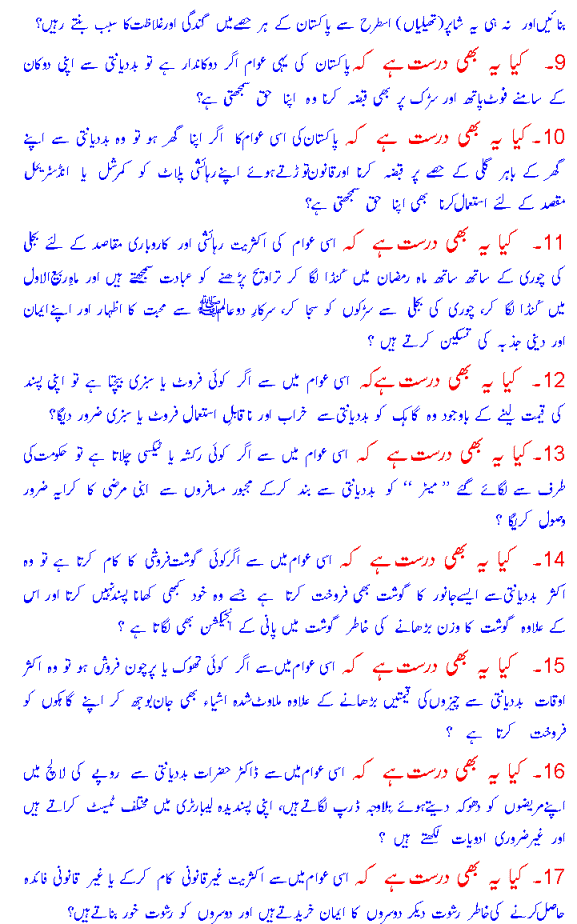 بنائیں اور نہ ہی یہ شاپر (تھیلیاں) اسطرح سے پاکستان کے ہر حصے میں گندگی اور غلاظت کا سبب بنتے رہیں؟
9۔ کیا یہ بھی درست ہے کہ پاکستان کی یہی عوام اگر دوکاندار ہے تو بددیانتی سے اپنی دوکان
کے سامنے فوٹ پاتھ اور سڑک پر بھی قبضہ کرنا وہ اپنا حق سمجھتی ہے؟
10۔ کیا یہ بھی درست ہے کہ پاکستان کی اسی عوام کا اگر اپنا گھر ہو تو وہ بددیانتی سے اپنے
گھر کے باہر گلی کے حصے پر قبضہ کرنا اور قانون توڑتے ہوئے اپنے رہائشی پلاٹ کو کمرشل یا انڈسٹریل
مقصد کے لئے استعمال کرنا بھی اپنا حق سمجھتی ہے؟
11۔ کیا یہ بھی درست ہے کہ اسی عوام کی اکثریت رہائشی اور کاروباری مقاصد کے لئے بجلی
کی چوری کے ساتھ ساتھ ماہ رمضان میں کنڈا لگا کر تراویح پڑھنے کو عبادت سمجھتے ہیں اور ماہ ربیع الاول
میں کنڈا لگا کر، چوری کی بجلی سے سڑکوں کو سجا کر، سرکار دوعالم ﷺ سے محبت کا اظہار اور اپنے ایمان
اور دینی جذبہ کی تسکین کرتے ہیں ؟
12۔ کیا یہ بھی درست ہے کہ اسی عوام میں سے اگر کوئی فروٹ یا سبزی بیچتا ہے تو اپنی پسند
کی قیمت لینے کے باوجود وہ گاہک کو بددیانتی سے خراب اور ناقابل استعمال فروٹ یا سبزی ضرور دیگا؟
13۔ کیا یہ بھی درست ہے کہ اسی عوام میں سے اگر کوئی رکشہ یا ٹیکسی چلاتا ہے تو حکومت کی
طرف سے لگائے گئے ”میٹر“ کو بددیانتی سے بند کرکے مجبور مسافروں سے اپنی مرضی کا کرایہ ضرور
وصول کریگا ؟
14۔ کیا یہ بھی درست ہے کہ اسی عوام میں سے اگر کوئی گوشت فروشی کا کام کرتا ہے تو وہ
اکثر بددیانتی سے ایسے جانور کا گوشت بھی فروخت کرتا ہے جسے وہ خود کبھی کھانا پسند نہیں کرتا اور اس
کے علاوہ گوشت کا وزن بڑھانے کی خاطر گوشت میں پانی کے انجیکشن بھی لگاتا ہے ؟
15۔ کیا یہ بھی درست ہے کہ اسی عوام میں سے اگر کوئی تھوک یا پرچون فروش ہو تو وہ اکثر
اوقات بددیانتی سے چیزوں کی قیمتیں بڑھانے کے علاوہ ملاوٹ شدہ اشیاء بھی جان بوجھ کر اپنے گاہکوں کو
فروخت کرتا ہے ؟
16۔ کیا یہ بھی درست ہے کہ اسی عوام میں سے ڈاکٹر حضرات بددیانتی سے روپے کی لالچ میں
اپنے مریضوں کو دھوکہ دیتے ہوئے بلاوجہ ڈرپ لگاتے ہیں، اپنی پسندیدہ لیبارٹری میں مختلف ٹیسٹ کراتے ہیں
اور غیر ضروری ادویات لکھتے ہیں ؟
17۔ کیا یہ بھی درست ہے کہ اسی عوام میں سے اکثریت غیر قانونی کام کرکے یا غیر قانونی فائدہ
حاصل کرنے کی خاطر رشوت دیکر دوسروں کا ایمان خریدتے ہیں اور دوسروں کو رشوت خور بناتے ہیں؟